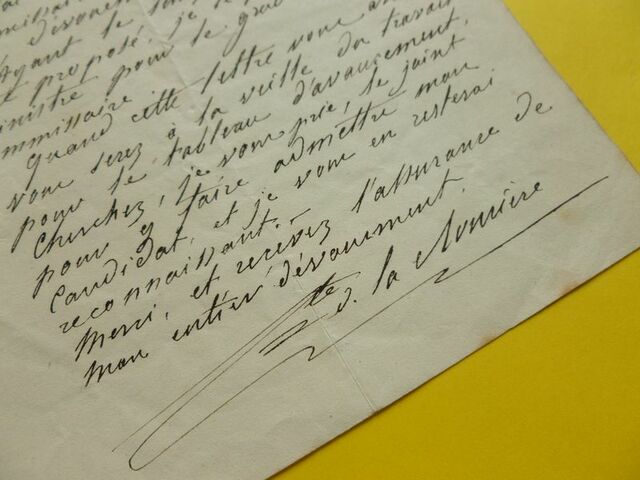 dévouement
Ayant le
proposé, je le
ministre pour le grad
commissaire
Quand cette lettre vous
vous serez à la veille du travail
pour le tableau d'avancement.
Cherchez, je vous prie, le joint
pour y faire admettre mon
candidat, et je vous en resterai
reconnaissant. —
Merci, et recevez l'assurance de
mon entier dévouement.
Cte d. la